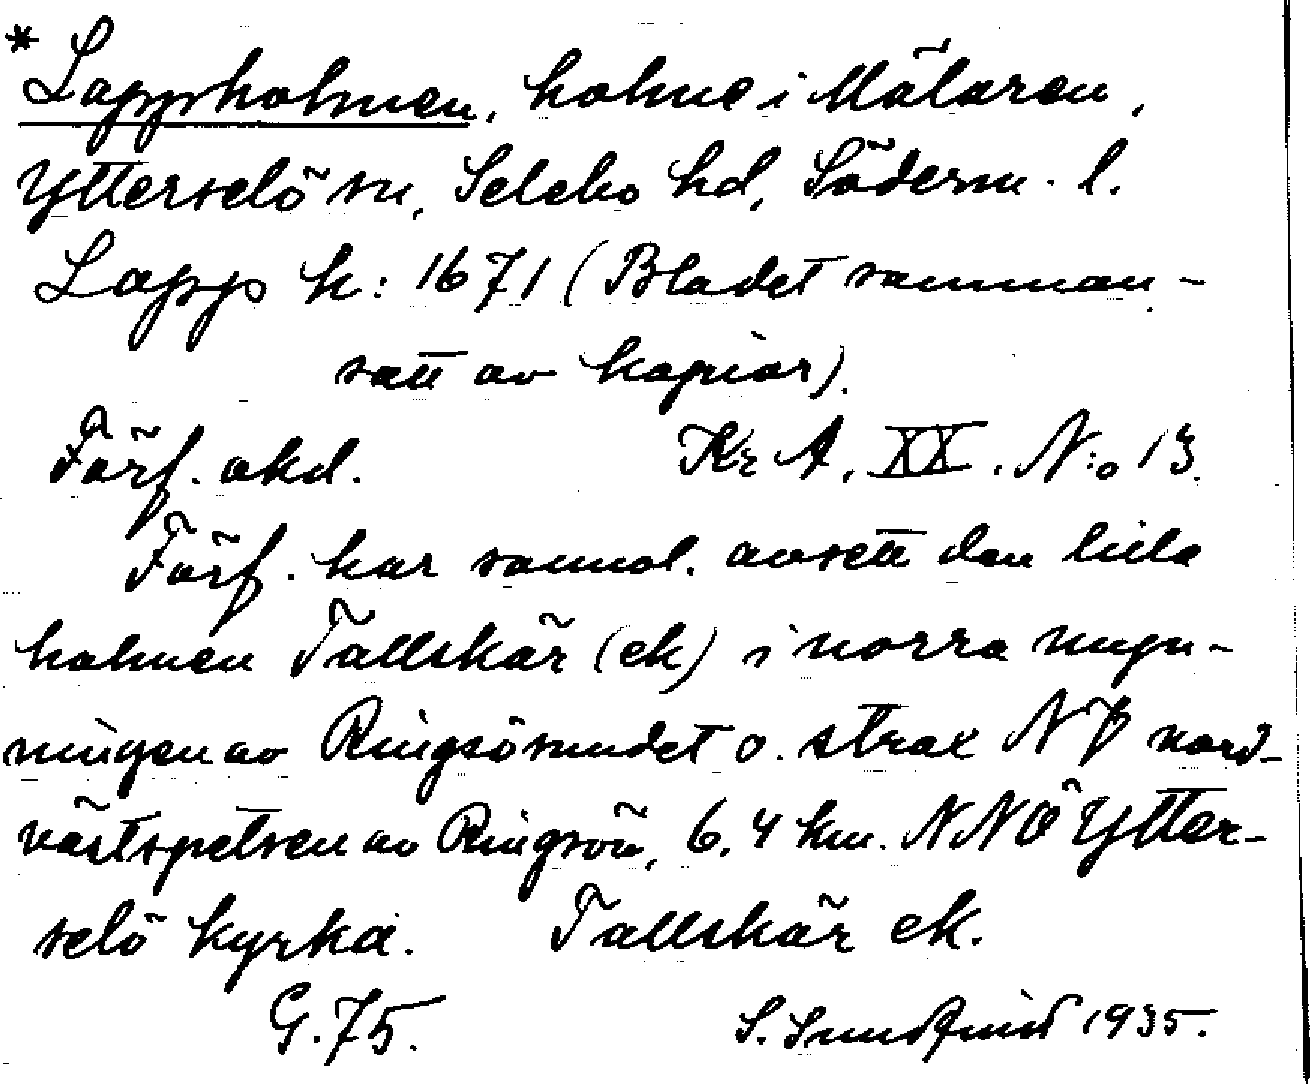 * Lappholmen, holme i Mälaren,
Ytterselö sn, Selebo hd, Söderm. l.
Lapp h: 1671 (Bladet samman-
satt av kopior).
Förf. okd. Kr A, XX. N:o 13.
Förf. har sannol. avsett den lilla
holmen Tallskär (ek) i norra myn-
ningen av Ringsösundet o. strax NV nord-
västspetsen av Ringsön, 6,4 km. NNÖ Ytter-
selö kyrka. Tallskär ek.
G. 75. S. Sundqvist 1935.